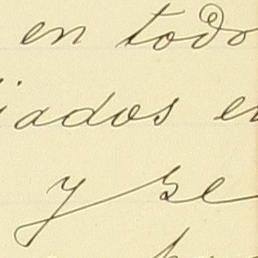 en todo
iados en
y se